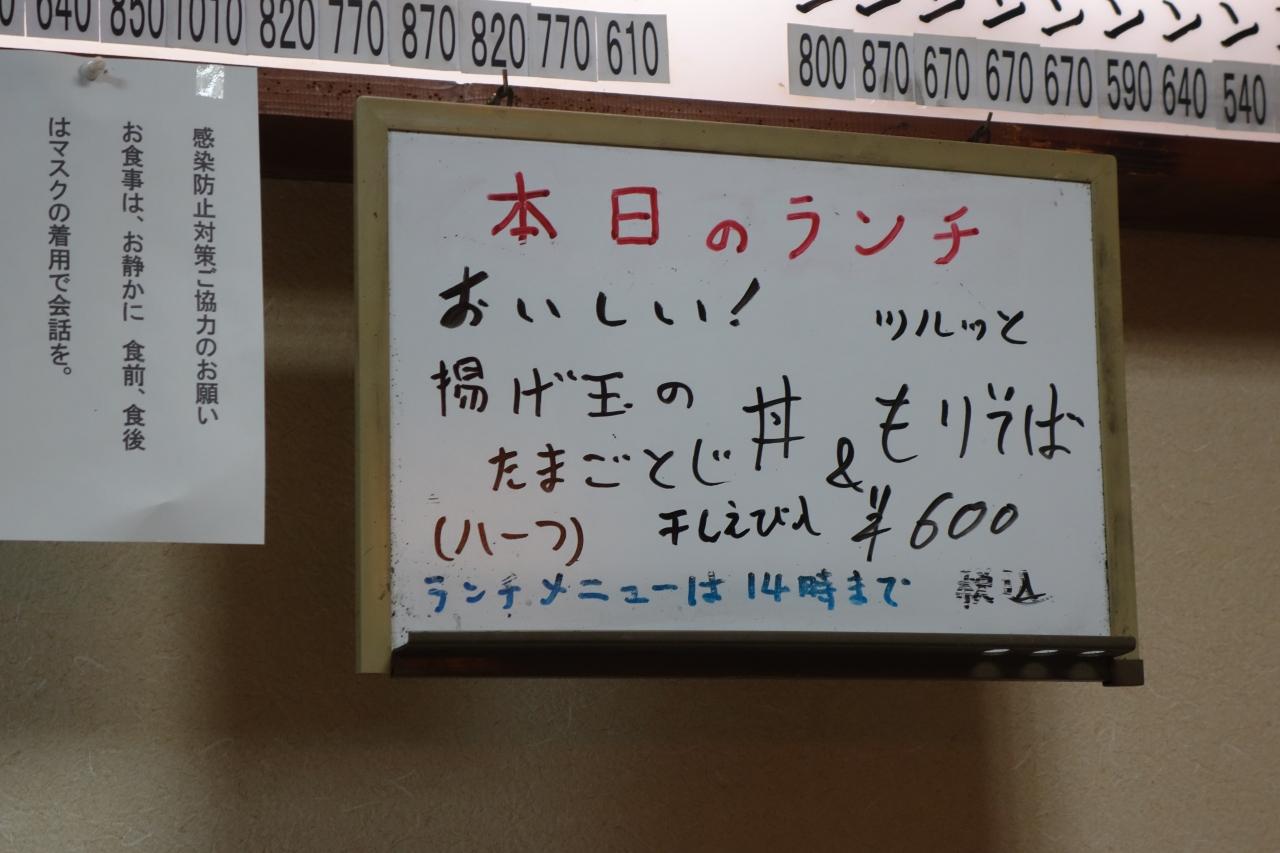 640 850 1010 820 770 870 820 770 610
ンンンンンンンン
800 870 670 670 670 590 640 540
感染防止対策ご協力のお願い
お食事は、お静かに 食前、食後
はマスクの着用で会話を。
本日のランチ
おいしい!
ツルッと
揚げ玉の
たまごとじ丼 & もりそば
(ハーフ) 干しえび入 ¥600
ランチメニューは14時まで 税込